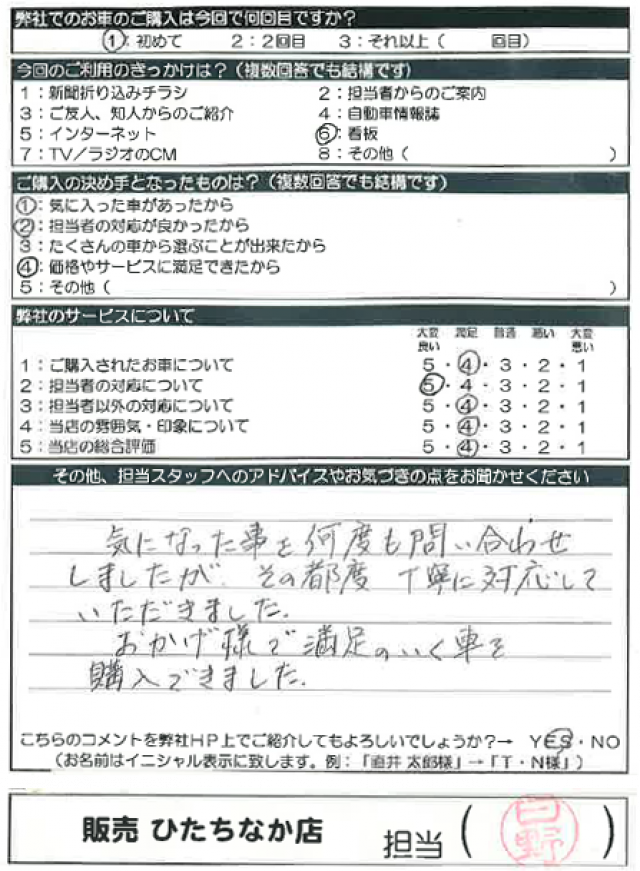 弊社でのお車のご購入は今回で何回目ですか？
①：初めて　2：2回目　3：それ以上（　回目）
今回のご利用のきっかけは？（複数回答でも結構です）
1：新聞折り込みチラシ　2：担当者からのご案内
3：ご友人、知人からのご紹介　4：自動車情報誌
5：インターネット　⑥：看板
7：TV／ラジオのCM　8：その他（　）
ご購入の決め手となったものは？（複数回答でも結構です）
①：気に入った車があったから
②：担当者の対応が良かったから
3：たくさんの車から選ぶことが出来たから
④：価格やサービスに満足できたから
5：その他（　）
弊社のサービスについて
大変良い　満足　普通　悪い　大変悪い
1：ご購入されたお車について　5・④・3・2・1
2：担当者の対応について　⑤・4・3・2・1
3：担当者以外の対応について　5・④・3・2・1
4：当店の雰囲気・印象について　5・④・3・2・1
5：当店の総合評価　5・④・3・2・1
その他、担当スタッフへのアドバイスやお気づきの点をお聞かせください
気になった事を何度も問い合わせ
しましたが、その都度 丁寧に対応して
いただきました。
おかげ様で満足のいく車を
購入できました。
こちらのコメントを弊社HP上でご紹介してもよろしいでしょうか？→　YES・NO
（お名前はイニシャル表示に致します。例：「直井 太郎様」→「T・N様」）
販売 ひたちなか店　担当（日野）